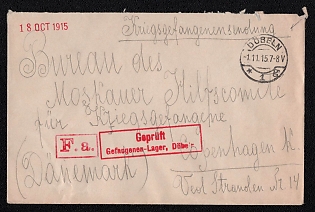 18 OCT 1915
Kriegsgefangenensendung
DÖBELN
1.11.15.7-8V
Bureau des
Moskauer Hilfscomite
für Kriegsgefangene
F.a.
Geprüft
Gefangenen-Lager, Döbeln
Kopenhagen K.
(Dänemark)
Vest Stranden Nr. 14